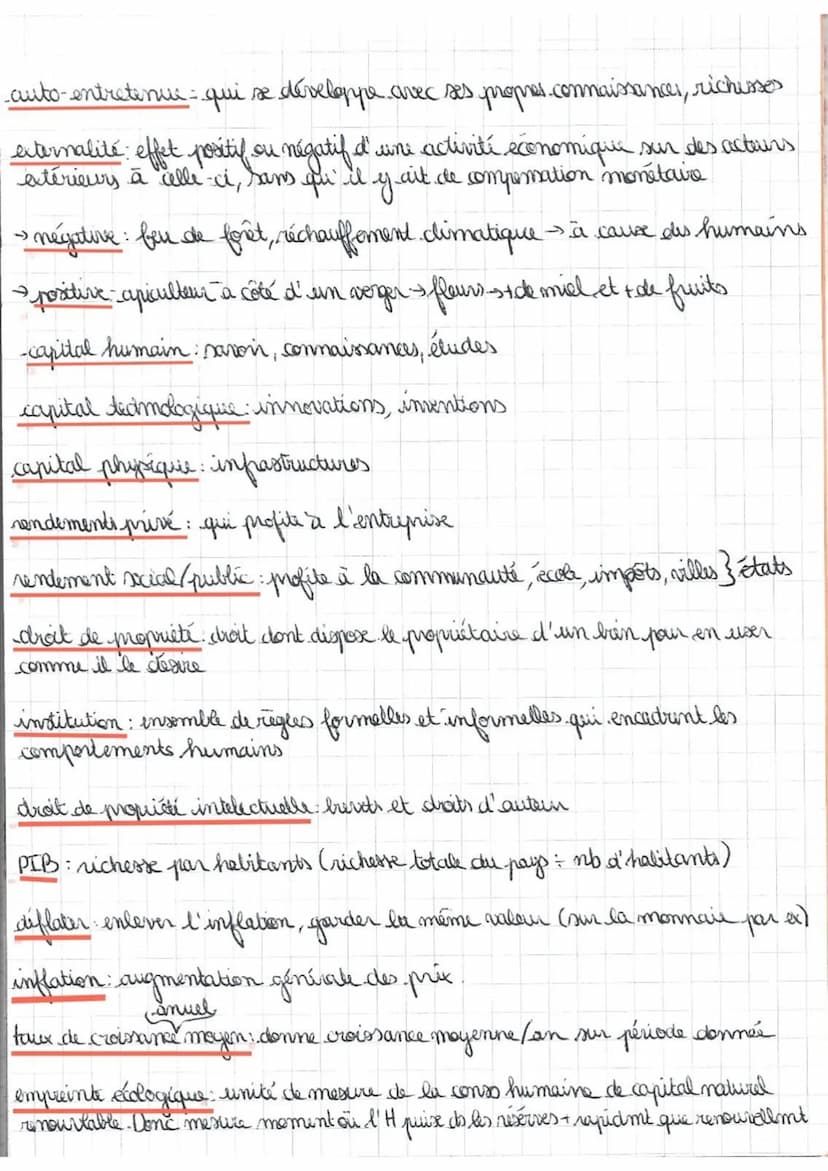 auto-entretenue : qui se développe avec ses propres connaissances, richesses
externalité : effet positif ou négatif d'une activité économique sur des acteurs
extérieurs à celle-ci, sans qu'il y ait de compensation monétaire
→ négative : feu de forêt, réchauffement climatique → à cause des humains
→ positive : apiculteur à côté d'un verger → fleurs → + de miel et + de fruits
- capital humain : savoir, connaissances, études
capital technologique : innovations, inventions
capital physique : infrastructures
rendements privé : qui profite à l'entreprise
rendement social/public : profite à la communauté, école, impôts, villes } états
droit de propriété : droit dont dispose le propriétaire d'un bien pour en user
comme il le désire
institution : ensemble de règles formelles et informelles qui encadrent les
comportements humains
droit de propiété intelectuelle : brevets et droits d'auteur
PIB : richesse par habitants (richesse totale du pays ÷ nb d'habitants)
déflater : enlever l'inflation, garder la même valeur (sur la monnaie par ex)
inflation : augmentation générale des prix.
anuel
taux de croissance moyen : donne croissance moyenne/an sur période donnée
empreinte écologique : unité de mesure de la conso humaine de capital naturel
renouvlable. Donc mesure moment où l'H puise ds les réserves + rapidmt que renouvellmt